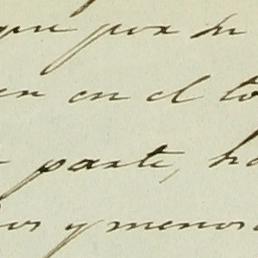 que por su
en en el to
parte, ha
os y menos